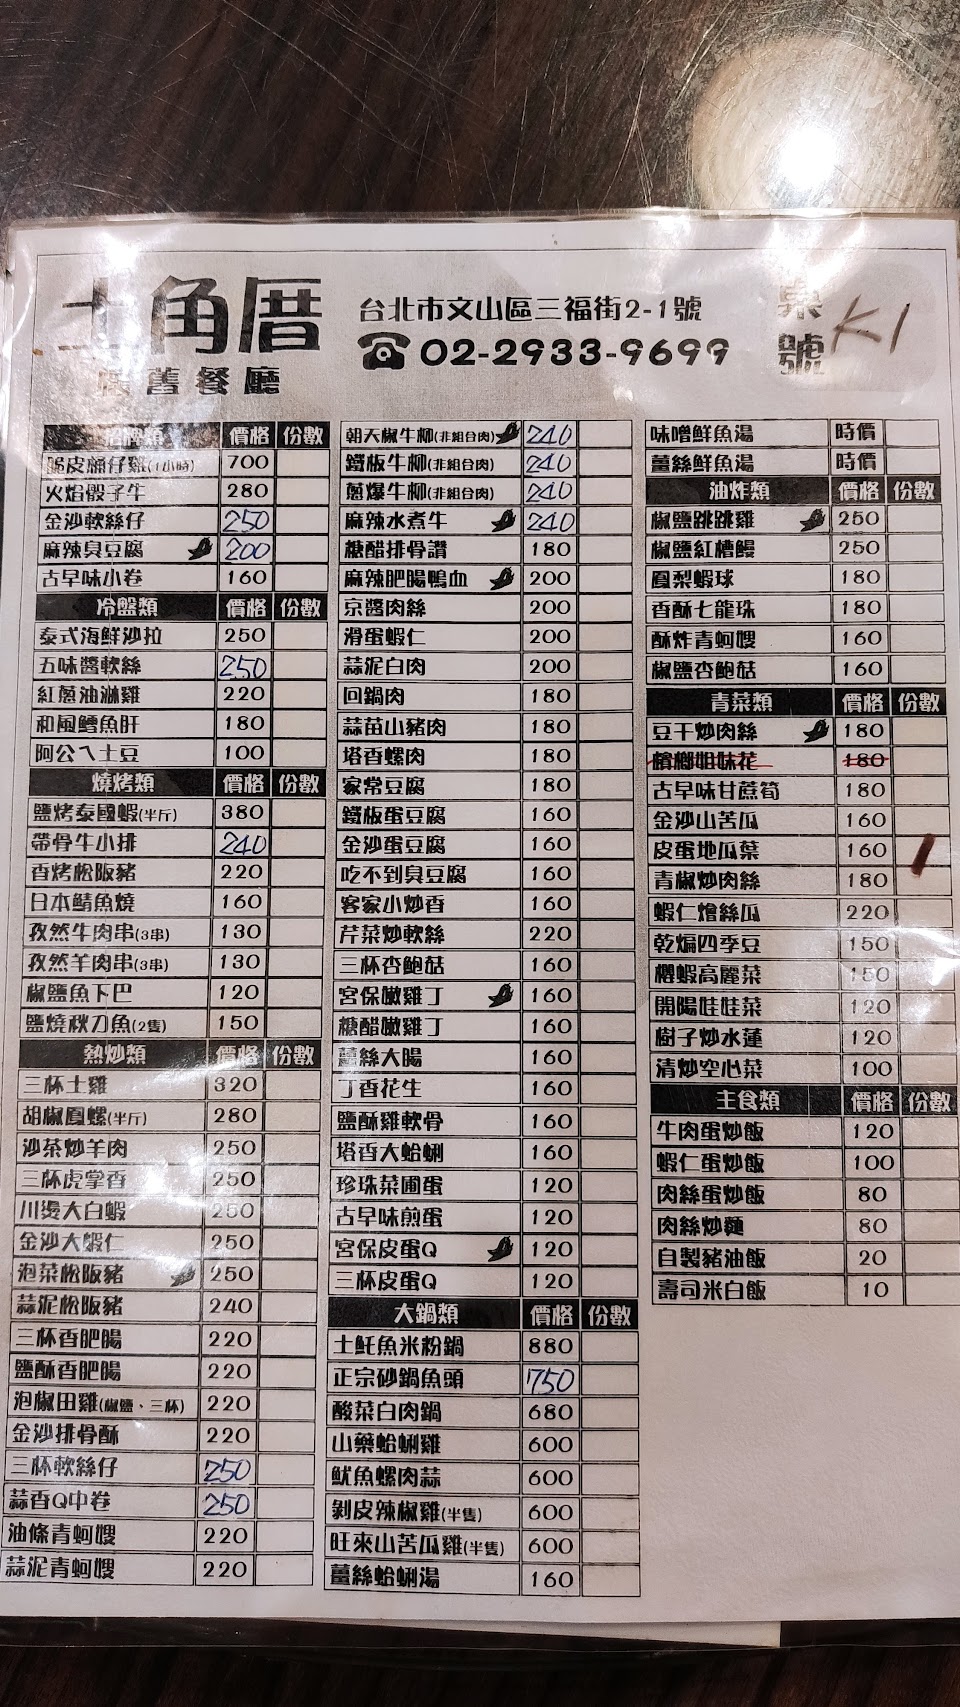 土角厝
懷舊餐廳
台北市文山區三福街2-1號
☎02-2933-9699
桌號 K1
招牌類 價格 份數
脆皮桶仔雞(1小時) 700
火焰骰子牛 280
金沙軟絲仔 250
麻辣臭豆腐 200
古早味小卷 160
冷盤類 價格 份數
泰式海鮮沙拉 250
五味醬軟絲 250
紅蔥油淋雞 220
和風鱈魚肝 180
阿公ㄟ土豆 100
燒烤類 價格 份數
鹽烤泰國蝦(半斤) 380
帶骨牛小排 240
香烤松阪豬 220
日本鯖魚燒 160
孜然牛肉串(3串) 130
孜然羊肉串(3串) 130
椒鹽魚下巴 120
鹽燒秋刀魚(2隻) 150
熱炒類 價格 份數
三杯土雞 320
胡椒鳳螺(半斤) 280
沙茶炒羊肉 250
三杯虎掌香 250
川燙大白蝦 250
金沙大蝦仁 250
泡菜松阪豬 250
蒜泥松阪豬 240
三杯香肥腸 220
鹽酥香肥腸 220
泡椒田雞(椒鹽、三杯) 220
金沙排骨酥 220
三杯軟絲仔 250
蒜香Q中卷 250
油條青蚵嫂 220
蒜泥青蚵嫂 220
朝天椒牛柳(非組合肉) 240
鐵板牛柳(非組合肉) 240
蔥爆牛柳(非組合肉) 240
麻辣水煮牛 240
糖醋排骨讚 180
麻辣肥腸鴨血 200
京醬肉絲 200
滑蛋蝦仁 200
蒜泥白肉 200
回鍋肉 180
蒜苗山豬肉 180
塔香螺肉 180
家常豆腐 180
鐵板蛋豆腐 160
金沙蛋豆腐 160
吃不到臭豆腐 160
客家小炒香 160
芹菜炒軟絲 220
三杯杏鮑菇 160
宮保嫩雞丁 160
糖醋嫩雞丁 160
薑絲大腸 160
丁香花生 160
鹽酥雞軟骨 160
塔香大蛤蜊 160
珍珠菜圃蛋 120
古早味煎蛋 120
宮保皮蛋Q 120
三杯皮蛋Q 120
大鍋類 價格 份數
土魠魚米粉鍋 880
正宗砂鍋魚頭 750
酸菜白肉鍋 680
山藥蛤蜊雞 600
魷魚螺肉蒜 600
剝皮辣椒雞(半隻) 600
旺來山苦瓜雞(半隻) 600
薑絲蛤蜊湯 160
味噌鮮魚湯 時價
薑絲鮮魚湯 時價
油炸類 價格 份數
椒鹽跳跳雞 250
椒鹽紅槽鰻 250
鳳梨蝦球 180
香酥七龍珠 180
酥炸青蚵嫂 160
椒鹽杏鮑菇 160
青菜類 價格 份數
豆干炒肉絲 180
檳榔姐妹花 180
古早味甘蔗筍 180
金沙山苦瓜 160
皮蛋地瓜葉 160
青椒炒肉絲 180
蝦仁燴絲瓜 220
乾煸四季豆 150
櫻蝦高麗菜 150
開陽娃娃菜 120
樹子炒水蓮 120
清炒空心菜 100
主食類 價格 份數
牛肉蛋炒飯 120
蝦仁蛋炒飯 100
肉絲蛋炒飯 80
肉絲炒麵 80
自製豬油飯 20
壽司米白飯 10